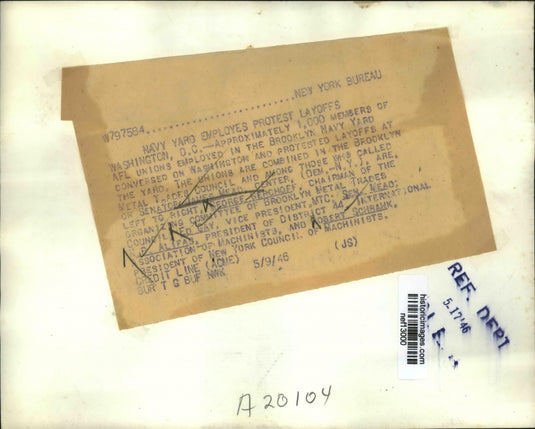 NEW YORK BUREAU
W797584
NAVY YARD EMPLOYES PROTEST LAYOFFS
WASHINGTON, D.C.--APPROXIMATELY 1,000 MEMBERS OF
AFL UNIONS EMPLOYED IN THE BROOKLYN NAVY YARD
CONVERGED ON WASHINGTON AND PROTESTED LAYOFFS AT
THE YARD. THE UNIONS ARE COMBINED IN THE BROOKLYN
METAL TRADES COUNCIL AND AMONG THOSE WHO CALLED
OR SENATOR MEAD, CENTER, (DEM.-N.Y.), ARE,
LEFT TO RIGHT: GEORGE CHAIRMAN OF THE
COMMITTEE OF BROOKLYN METAL TRADES
COUNCIL; RAY, VICE PRESIDENT, MTC, SEN. MEAD;
ALIFAS, PRESIDENT OF DISTRICT INTERNATIONAL
ASSOCIATION OF MACHINISTS, AND ROBERT SCHRANK,
PRESIDENT OF NEW YORK COUNCIL OF MACHINISTS.
CREDIT LINE (ACME) 5/9/46 (JS)
BUR T G BUF NWK
REF. DEPT
5.17'46
historicimages.com
nef13000
A20104